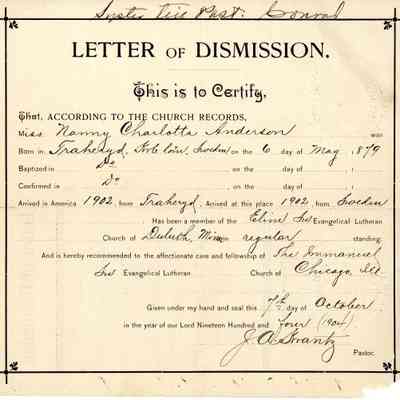 Syster till Past. Conrad
LETTER OF DISMISSION.
This is to Certify,
That, ACCORDING TO THE CHURCH RECORDS,
Miss Nanny Charlotta Anderson was
Born in Traheryd, Sweden on the 6 day of May 1879
Baptized in Do , on the day of ,
Confirmed in Do , on the day of ,
Arrived in America 1902, from Traheryd, Arrived at this place 1902, from Sweden
Has been a member of the Elim Sw Evangelical Lutheran
Church of Duluth, Minn in regular standing,
And is hereby recommended to the affectionate care and fellowship of The Immanuel
Sw Evangelical Lutheran Church of Chicago, Ill.
Given under my hand and seal this 7th day of October
in the year of our Lord Nineteen Hundred and four (1904)
J. A. Krantz
Pastor.